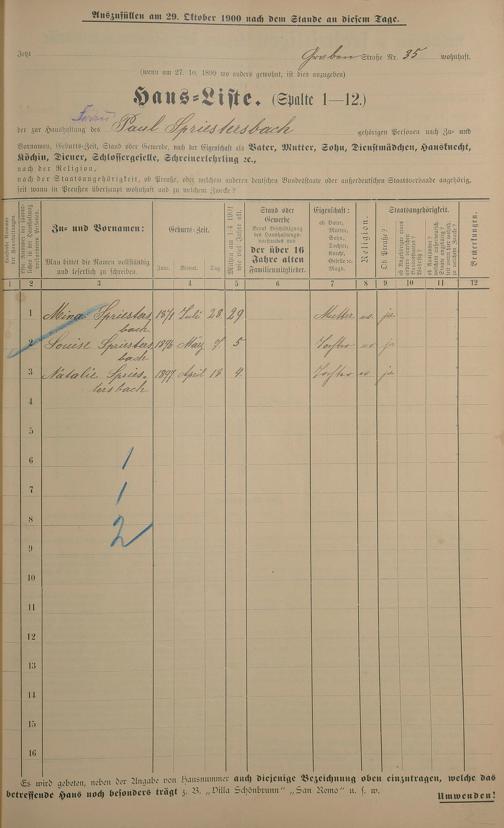 Auszufüllen am 29. Oktober 1900 nach dem Stande an diesem Tage.
Jetzt Graben Straße Nr. 35 wohnhaft.
(wenn am 27. 10. 1899 wo anders gewohnt, ist dies anzugeben)
Haus-Liste. (Spalte 1—12.)
Frau
der zur Haushaltung des Paul Spriestersbach gehörigen Personen nach Zu- und
Vornamen, Geburts-Zeit, Stand oder Gewerbe, nach der Eigenschaft als Vater, Mutter, Sohn, Dienstmädchen, Hausknecht,
Köchin, Diener, Schlossergeselle, Schreinerlehrling ec.,
nach der Religion,
nach der Staatsangehörigkeit, ob Preuße, oder welchem anderen deutschen Bundesstaate oder außerdeutschen Staatsverbande angehörig,
seit wann in Preußen überhaupt wohnhaft und zu welchem Zwecke?
Zu- und Vornamen:
Man bittet die Namen vollständig und leserlich zu schreiben.
Geburts-Zeit.
Jahr. Monat. Tag
Stand oder Gewerbe
der über 16 Jahre alten Familienmitglieder.
Eigenschaft:
ob Vater, Mutter, Sohn, Tochter, Knecht, Geselle ec. Magd.
Religion.
Staatsangehörigkeit.
Ob Preuße?
Bemerkungen.
1 2 3 4 5 6 7 8 9 10 11 12
1 Mina Spriestersbach 1871 Juli 28 29 Mutter ev. ja
2 Louise Spriestersbach 1896 März 7 5 Tochter ev ja
3 Natalie Spriestersbach 1897 April 18 4 Tochter ev ja
4
5
6 1
7 1
8 2
9
10
11
12
13
14
15
16
Es wird gebeten, neben der Angabe von Hausnummer auch diejenige Bezeichnung oben einzutragen, welche das
betreffende Haus noch besonders trägt z. B. „Villa Schönbrunn" „San Remo" u. s. w.
Umwenden!